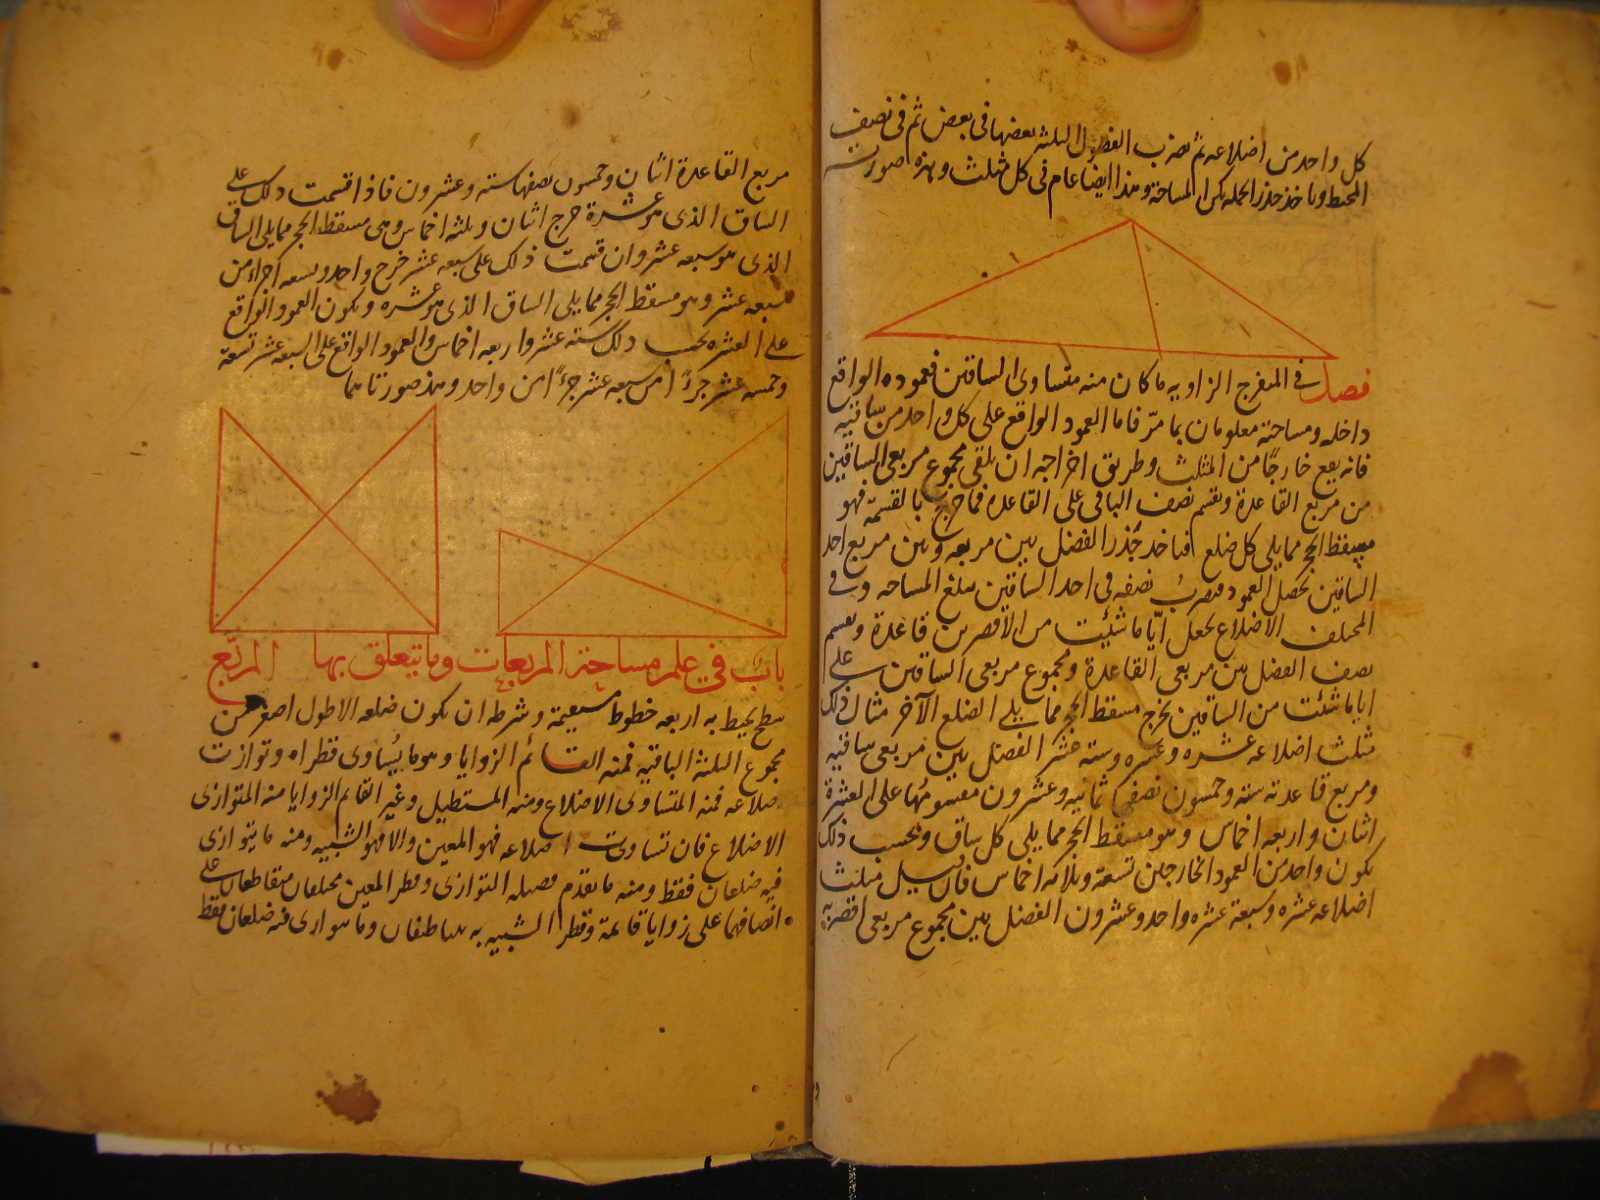 كل واحد من اضلاعه ثم تضرب الفضول الثلثة بعضها فى بعض ثم فى نصف
المحيط وتاخذ جذر الجملة يكن المساحة وهذا ايضا عام فى كل مثلث وهذه صورته
فصل فى المنفرج الزاويه ما كان منه متساوى الساقين فعموده الواقع
داخله ومساحته معلومان بما مرّ فاما العمود الواقع على كل واحد من ساقيه
فانه يقع خارجًا من المثلث وطريق اخراجه ان تلقى مجموع مربعى الساقين
من مربع القاعدة وتقسم نصف الباقى على القاعدة فما خرج بالقسمة فهو
مسقط الحجر مما يلى كل ضلع فتاخذ جذر الفضل بين مربعه وبين مربع احد
الساقين تحصل العمود فتضرب نصفه فى احد الساقين تبلغ المساحه وفى
المختلف الاضلاع تجعل ايّا ما شئت من الاقصرين قاعدة وتقسم
نصف الفضل بين مربعى القاعدة ومجموع مربعى الساقين على
ايا ما شئت من الساقين تخرج مسقط الحجر مما يلى الضلع الآخر مثال ذلك
مثلث اضلاعه عشره وعشره وسته عشر الفضل بين مربعى ساقيه
ومربع قاعدته ستة وخمسون نصفها ثمانيه وعشرون مقسومًا على العشرة
اثنان واربعه اخماس وهو مسقط الحجر مما يلى كل ساق وبحسب ذلك
يكون واحد من العمود الخارجين تسعة وثلاثه اخماس فان قيل مثلث
اضلاعه عشره وسبعة عشره واحد وعشرون الفضل بين مجموع مربعى اقصريه
مربع القاعدة اثنان وخمسون نصفها سته وعشرون فاذا قسمت ذلك على
الساق الذى هو عشرة خرج اثنان وثلثه اخماس وهى مسقط الحجر مما يلى الساق
الذى هو سبعه عشر وان قسمت ذلك على سبعه عشر خرج واحد وتسعه اجزاء من
سبعه عشر وهو مسقط الحجر مما يلى الساق الذى هو عشره ويكون العمود الواقع
على العشره بحسب ذلك سته عشر واربعه اخماس والعمود الواقع على السبعه عشر تسعة
وخمسه عشر جزءًا من سبعه عشر جزءًا من واحد وهذه صورتاهما
باب فى علم مساحة المربعات وما يتعلق بها المربّع
سطح يحيط به اربعه خطوط مستقيمة وشرطه ان يكون ضلعه الاطول اصغر من
مجموع الثلثة الباقيه فمنه القائم الزوايا وهو ما يُساوى قطراه وتوازت
اضلاعه فمنه المتساوى الاضلاع ومنه المستطيل وغير القائم الزوايا منه المتوازى
الاضلاع فان تساوت اضلاعه فهو المعين والا فهو الشبيه ومنه ما يتوازى
فيه ضلعان فقط ومنه ما تقدم فصيله التوازى وقطر المعين مختلفان متقاطعان على
انصافهما على زوايا قائمة وقطرا الشبيه به وما هو ازى فيه ضلعان فقط